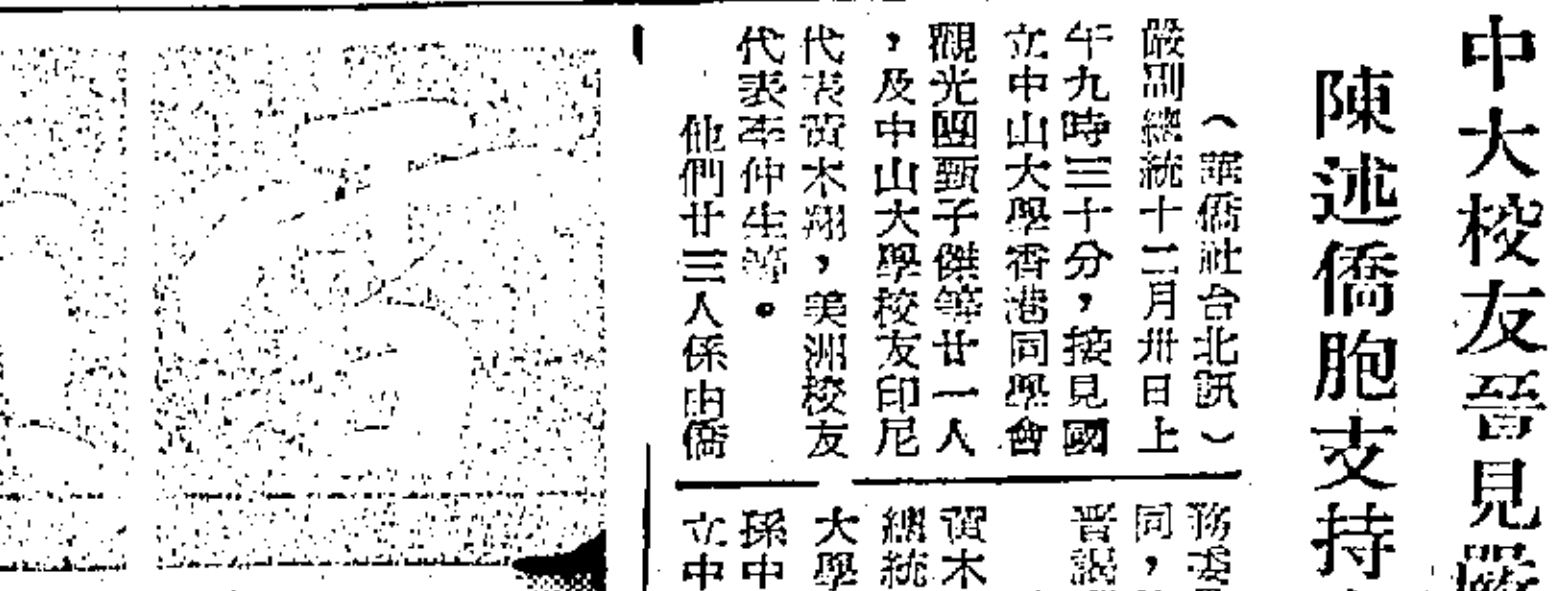 中大校友晉見嚴
陳述僑胞支持
（華僑社台北訊）
嚴副總統十二月卅日上
午九時三十分，接見國
立中山大學香港同學會
觀光團甄子傑等廿一人
，及中山大學校友印尼
代表黃木翔，美洲校友
代表李仲生等。
他們廿三人係由僑
務委
同，
晋謁
黃木
總統
大學
孫中
立中